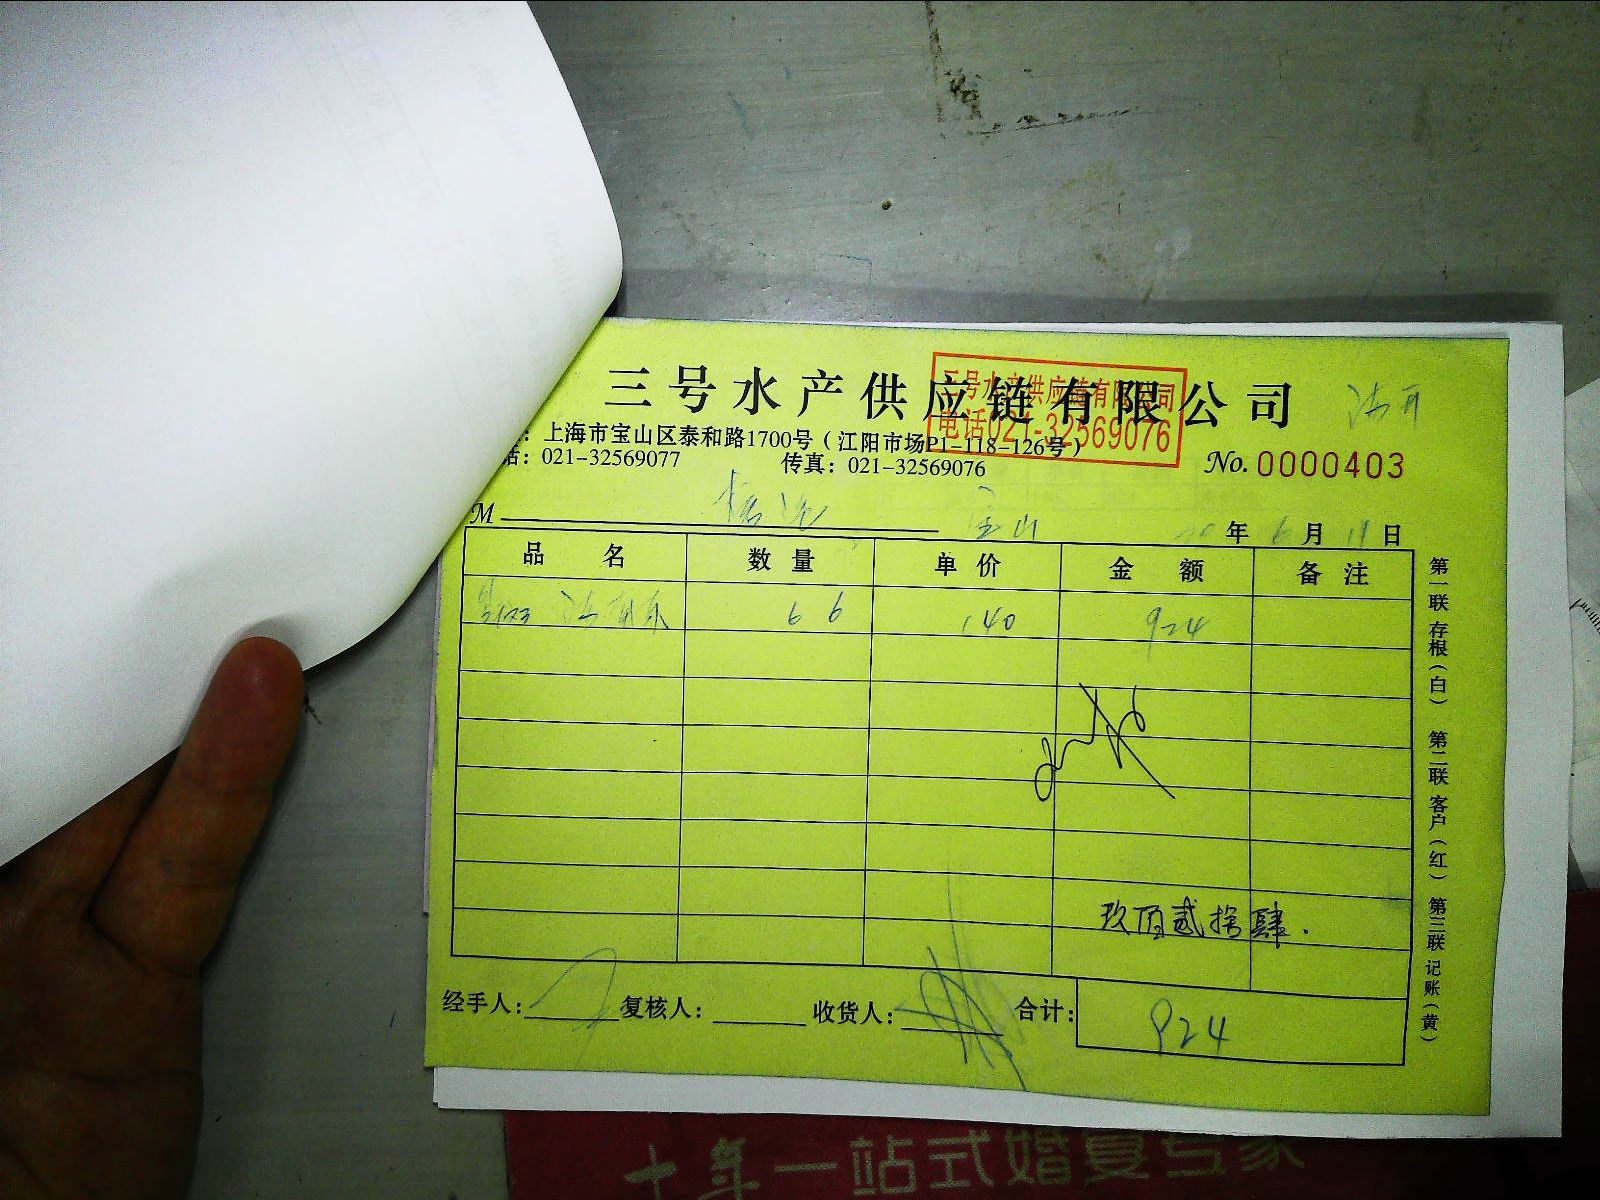 三号水产供应链有限公司
三号水产供应链有限公司
电话021-32569076
上海市宝山区泰和路1700号（江阳市场P1-118-126号）
话：021-32569077 传真：021-32569076
No. 0000403
M 宝山 20年6月11日
品名 数量 单价 金额 备注
66 140 924
玖佰贰拾肆.
经手人： 复核人： 收货人： 合计： 924
第一联存根（白） 第二联客户（红） 第三联记账（黄）
十年一站式婚宴专家